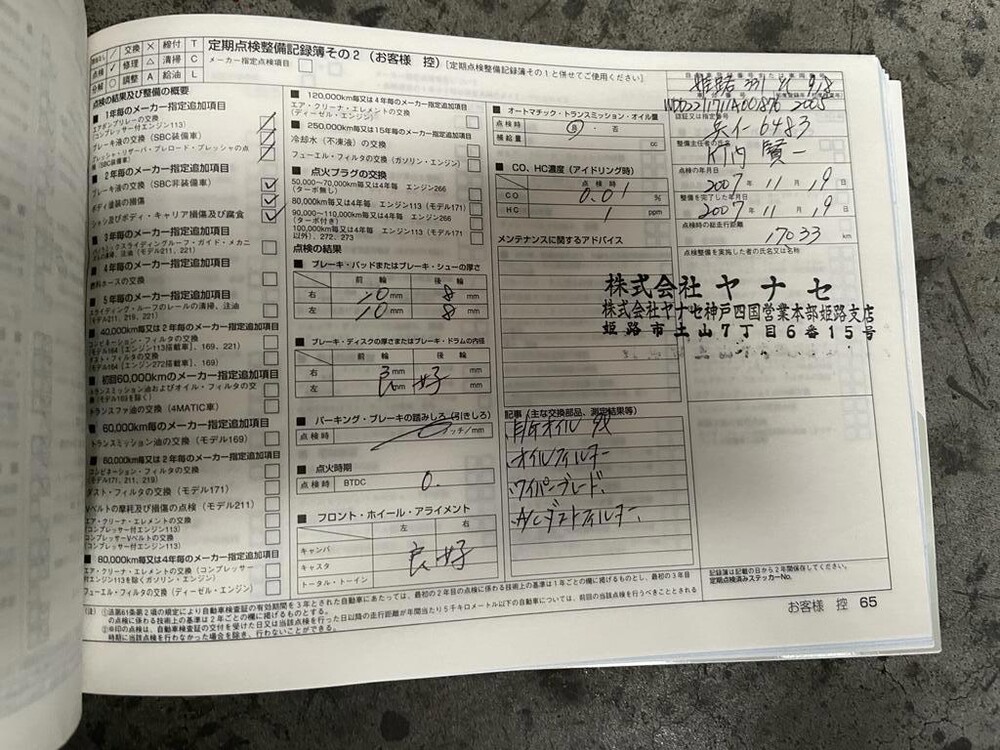 交換 × 締付 T
点検 レ 修理 △ 清掃 C
分解 〇 調整 A 給油 L
定期点検整備記録簿その2（お客様 控）[定期点検整備記録簿その1と併せてご使用ください]
メーカー指定点検項目
点検の結果及び整備の概要
■ 1年毎のメーカー指定追加項目
コンプレッサー付エンジン113)
ブレーキ液の交換 (SBC装備車)
(SBC装備車)
■ 2年毎のメーカー指定追加項目
ブレーキ液の交換 (SBC非装備車)
ボディ塗装の損傷
ボディ・キャリア損傷及び腐食
■ 3年毎のメーカー指定追加項目
スライディングルーフ・ガイド・メカニ
(モデル211, 221)
■ 4年毎のメーカー指定追加項目
燃料ホースの交換
■ 5年毎のメーカー指定追加項目
スライディング・ルーフのレールの清掃、注油
(モデル211, 219, 221)
■ 40,000km毎又は2年毎のメーカー指定追加項目
コンビネーション・フィルタの交換
(モデル164 [エンジン113搭載車], 169, 221)
ダスト・フィルタの交換
(モデル164 [エンジン272搭載車], 169)
■ 初回60,000kmのメーカー指定追加項目
トランスミッション油およびオイル・フィルタの交
換 (モデル169を除く)
トランスファ油の交換 (4MATIC車)
■ 60,000km毎のメーカー指定追加項目
トランスミッション油の交換 (モデル169)
■ 60,000km又は2年毎のメーカー指定追加項目
コンビネーション・フィルタの交換
(モデル171, 211, 219)
ダスト・フィルタの交換 (モデル171)
Vベルトの摩耗及び損傷の点検 (モデル211)
エア・クリーナ・エレメントの交換
(コンプレッサー付エンジン113)
コンプレッサーVベルトの交換
(コンプレッサー付エンジン113)
■ 80,000km毎又は4年毎のメーカー指定追加項目
エア・クリーナ・エレメントの交換 (コンプレッサー
付エンジン113を除くガソリン・エンジン)
フューエル・フィルタの交換 (ディーゼル・エンジン)
■ 120,000km毎又は4年毎のメーカー指定追加項目
エア・クリーナ・エレメントの交換
(ディーゼル・エンジン)
■ 250,000km毎又は15年毎のメーカー指定追加項目
冷却水 (不凍液) の交換
フューエル・フィルタの交換 (ガソリン・エンジン)
■ 点火プラグの交換
50,000～70,000km毎又は4年毎 エンジン266
(ターボ無し)
80,000km毎又は4年毎 エンジン113 (モデル171)
90,000～110,000km毎又は4年毎 エンジン266
(ターボ付き)
100,000km毎又は4年毎 エンジン113 (モデル171
以外), 272, 273
点検の結果
■ ブレーキ・パッドまたはブレーキ・シューの厚さ
前 輪 後 輪
右 10 mm 8 mm
左 10 mm 8 mm
■ ブレーキ・ディスクの厚さまたはブレーキ・ドラムの内径
前 輪 後 輪
右 mm mm
左 良 mm 好 mm
■ パーキング・ブレーキの踏みしろ (引きしろ)
点検時 ノッチ/mm
■ 点火時期
点検時 BTDC 0.
■ フロント・ホイール・アライメント
左 右
キャンバ
キャスタ 良 好
トータル・トーイン
■ オートマチック・トランスミッション・オイル量
点検時 良 ・ 否
補給量 cc
■ CO、HC濃度 (アイドリング時)
点 検 時
CO 0.01 %
HC 1 ppm
メンテナンスに関するアドバイス
記事 (主な交換部品、測定結果等)
オイルフィルター
ワイパーブレード.
A/Cダストフィルター.
姫路 331
WDD2211711A001876 2005
認証又は指定番号
兵イ-6483
整備主任者の氏名
竹内 賢一
点検の年月日
2007 年 11 月 19 日
整備を完了した年月日
2007 年 11 月 19 日
点検時の総走行距離
17033 km
点検整備を実施した者の氏名又は名称
株式会社 ヤ ナ セ
株式会社ヤナセ神戸四国営業本部姫路支店
姫路市土山7丁目6番15号
記録簿は記載の日から2年間保存してください。
定期点検済みステッカーNo.
(注) ①法第61条第2項の規定により自動車検査証の有効期間を3年とされた自動車にあたっては、最初の2年目の点検に係る技術上の基準は1年ごとの欄に掲げるものとし、最初の3年目
の点検に係る技術上の基準は2年ごとの欄に掲げるものとする。
②※印の点検は、自動車検査証の交付を受けた日又は当該点検を行った日以降の走行距離が年間当たり5千キロメートル以下の自動車については、前回の当該点検を行うべきこととされる
時期に当該点検を行わなかった場合を除き、行わないことができる。
お客様 控 65